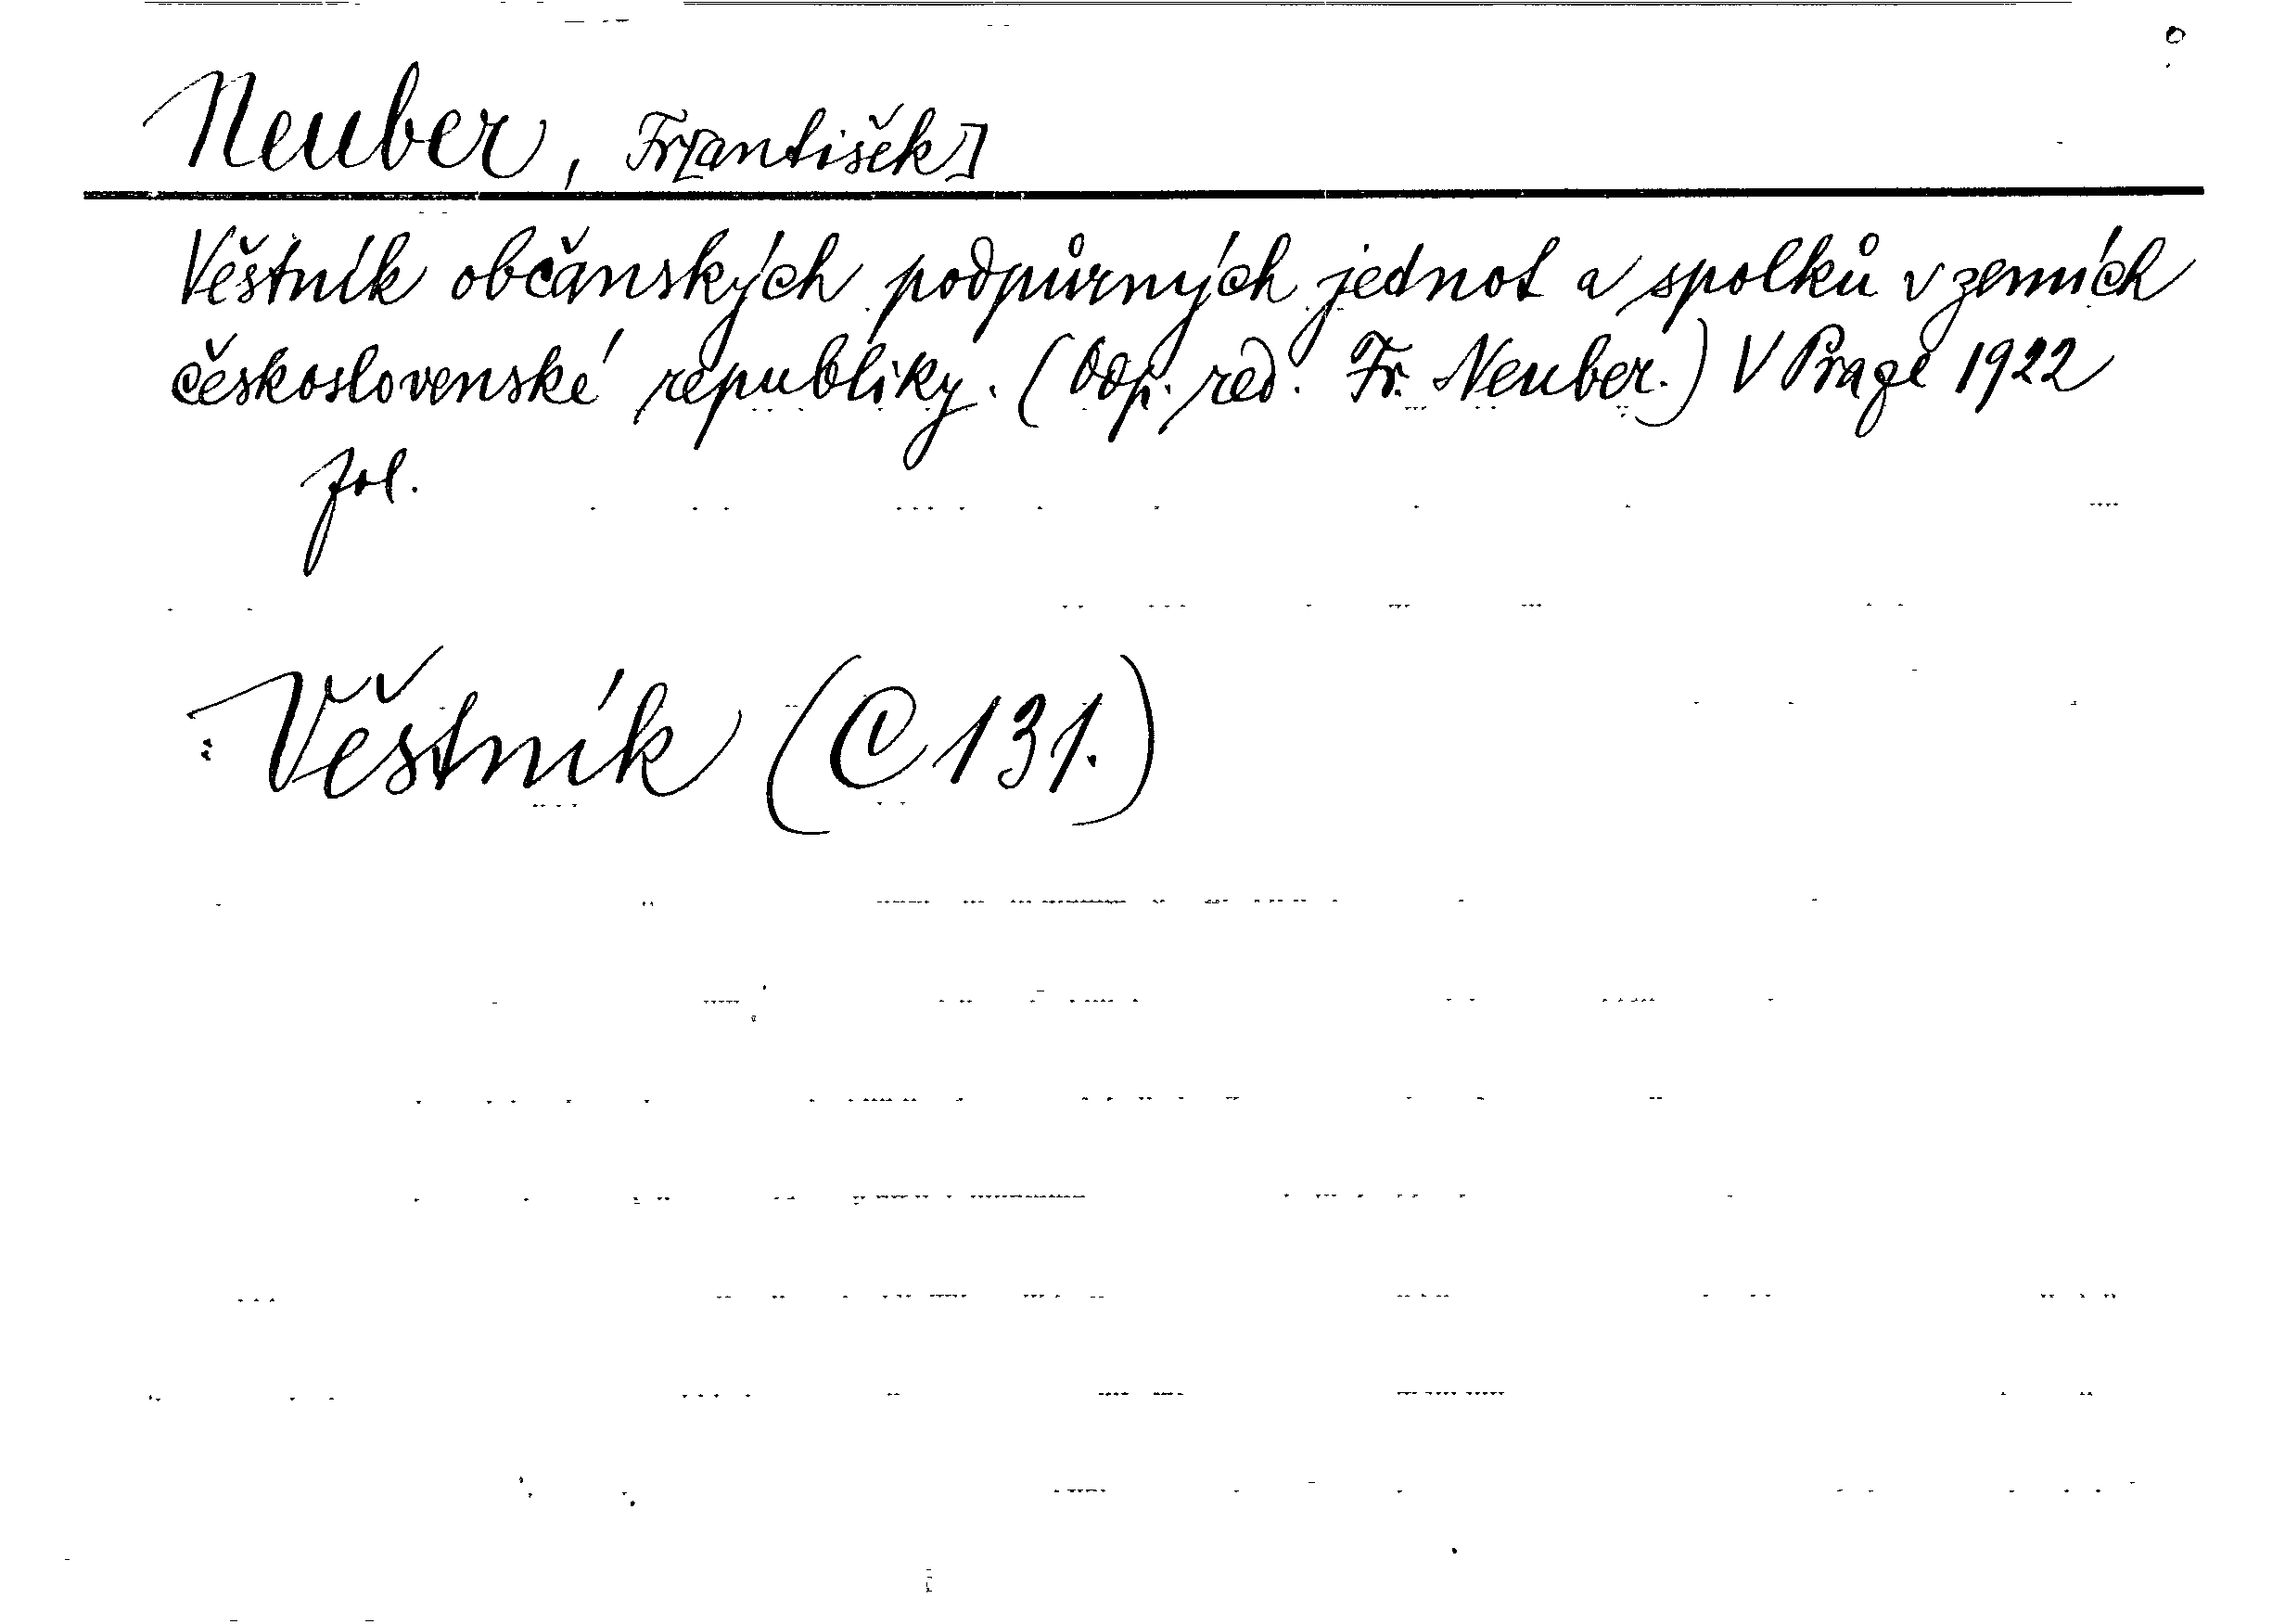 Neuber, Fr[antišek]
Věštník občanských podpůrných jednot a spolků v zemích
československé republiky. (Odp. red. Fr. Neuber.) V Praze 1922
fol.
Věštník (C 131.)